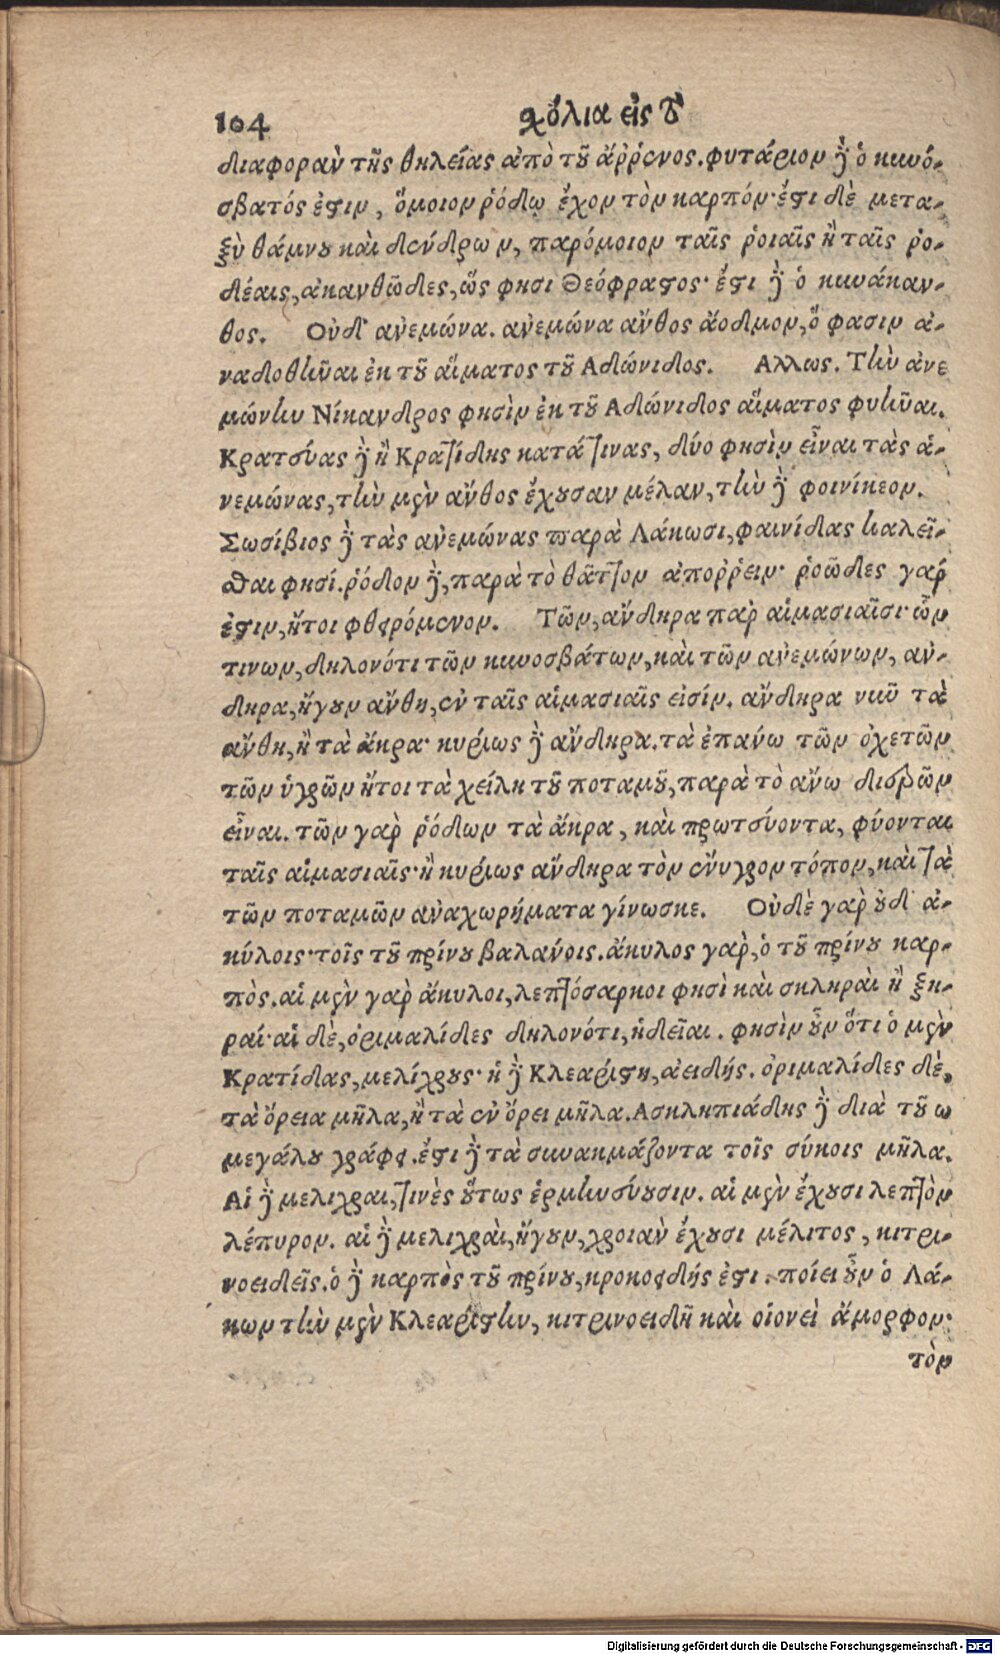 104
χόλια εἰς τ̃
διαφορὰν τῆς θηλείας ἀπὸ τοῦ ἄῤῥενος. φυτάριον δὲ ὁ κυνό-
σβατός ἐστιν, ὅμοιον ῥόδῳ ἔχον τὸν καρπόν· ἔστι δὲ μετα-
ξὺ θάμνου καὶ δένδρων, παρόμοιον ταῖς ῥοιαῖς ἢ ταῖς ῥο-
δέαις, ἀκανθῶδες, ὥς φησι Θεόφραστος· ἔστι δὲ ὁ κυνάκαν-
θος. Οὐδ' ἀνεμώνα. ἀνεμώνα ἄνθος ἄοδμον, ὅ φασιν ἀ-
ναδοθῆναι ἐκ τοῦ αἵματος τοῦ Ἀδώνιδος. Αλλως. Τὴν ἀνε
μώνην Νίκανδρος φησὶν ἐκ τοῦ Ἀδώνιδος αἵματος φυῆναι.
Κρατεύας δὲ ἢ Κρατίδης κατά τινας, δύο φησὶν εἶναι τὰς ἀ-
νεμώνας, τὴν μὲν ἄνθος ἔχουσαν μέλαν, τὴν δὲ φοινίκεον.
Σωσίβιος δὲ τὰς ἀνεμώνας παρὰ Λάκωσι, φαινίδας καλεῖ-
σθαι φησί. ῥόδον δὲ, παρὰ τὸ θᾶττον ἀποῤῥεῖν· ῥοῶδες γάρ
ἐστιν, ἤτοι φθειρόμενον. Τῶν, ἄνδηρα παρ αἱμασιαῖσι· ὧν
τινων, δηλονότι τῶν κυνοσβάτων, καὶ τῶν ἀνεμώνων, ἄν-
δηρα, ἤγουν ἄνθη, ἐν ταῖς αἱμασιαῖς εἰσίν. ἄνδηρα νῦν τὰ
ἄνθη, ἢ τὰ ἄκρα· κυρίως δὲ ἄνδηρα. τὰ ἐπάνω τῶν ὀχετῶν
τῶν ὑγρῶν ἤτοι τὰ χείλη τοῦ ποταμοῦ, παρὰ τὸ ἄνω διερῶν
εἶναι. τῶν γὰρ ῥόδων τὰ ἄκρα, καὶ πρωτεύοντα, φύονται
ταῖς αἱμασιαῖς· ἢ κυρίως ἄνδηρα τὸν ἔνυγρον τόπον, καὶ τὰ
τῶν ποταμῶν ἀναχωρήματα γίνωσκε. Οὐδὲ γὰρ οὐδ' ἀ-
κύλοις· τοῖς τοῦ πρίνου βαλάνοις. ἄκυλος γὰρ, ὁ τοῦ πρίνου καρ-
πὸς. αἱ μὲν γὰρ ἄκυλοι, λεπτόσαρκοι φησὶ καὶ σκληραὶ ἢ ξη-
ραί· αἱ δὲ, ὀριμαλίδες δηλονότι, ἡδεῖαι. φησὶν οὖν ὅτι ὁ μὲν
Κρατίδας, μελίχρους· ἡ δὲ Κλεαρίστη, ἀειδής. ὀριμαλίδες δὲ,
τὰ ὄρεια μῆλα, ἢ τὰ ἐν ὄρει μῆλα. Ασκληπιάδης δὲ διὰ τοῦ ω
μεγάλου γράφει. ἔστι δὲ τὰ συνακμάζοντα τοῖς σύκοις μῆλα.
Αἱ δὲ μελιχραι, τινὲς οὕτως ἑρμηνεύουσιν. αἱ μὲν ἔχουσι λεπτὸν
λέπυρον. αἱ δὲ μελιχραὶ, ἤγουν, χροιὰν ἔχουσι μέλιτος, κιτρι-
νοειδεῖς. ὁ δὲ καρπὸς τοῦ πρίνου, κροκοειδής ἐστι. ποίει οὖν ὁ Λά-
κων τὴν μὲν Κλεαρίστην, κιτρινοειδῆ καὶ οἱονεὶ ἄμορφον·
τὸν
Digitalisierung gefördert durch die Deutsche Forschungsgemeinschaft - DFG